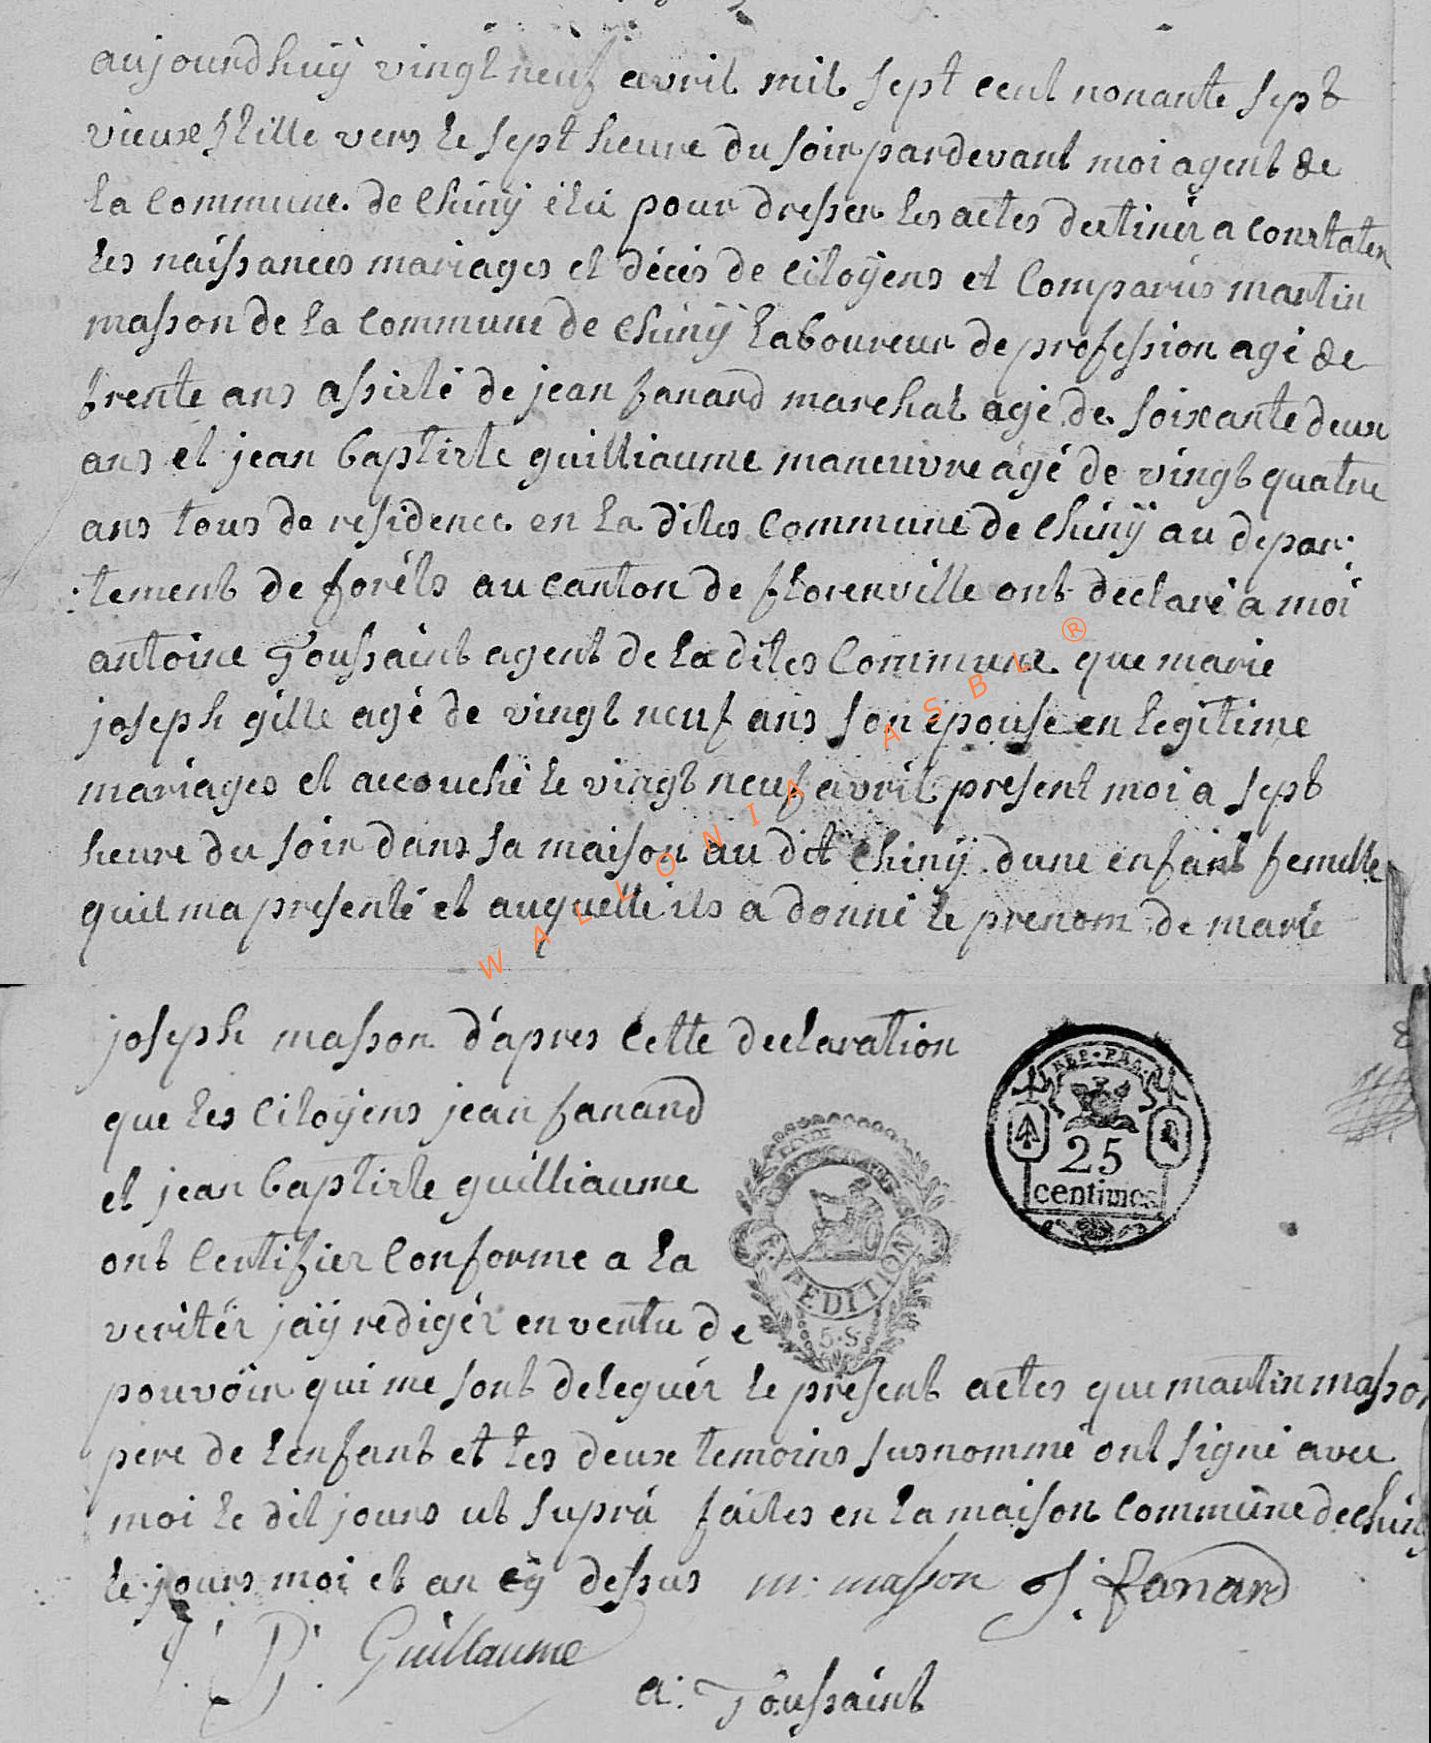 aujourdhuÿ vingt neuf avril mil sept cent nonante sept
vieux stille vers le sept heure du soir pardevant moi agent de
la commune de chinÿ élü pour dresser les actes destiner a constater
les naissances mariages et décès de citoÿens et comparüs martin
masson de la commune de chinÿ laboureur de profession agé de
trente ans assisté de jean fanard marchal agé de soixante deux
ans et jean baptiste guilliaume maneuvre agé de vingt quatre
ans tous de residence en la dites commune de chinÿ au depar:
:tement de forêts au canton de florenville ont declaré a moi
antoine Toussaint agent de la dites commune que marie
joseph gille agé de vingt neuf ans son épouse en legitime
mariages et accouché le vingt neuf avril present moi a sept
heure du soir dans sa maison au dit chinÿ dune enfant femelle
quil ma presenté et auquelle ils a donné le prenom de marie
joseph masson d'apres cette declaration
que les citoÿens jean fanard
et jean baptiste guilliaume
ont certifier conforme a la
veritér jaÿ redigér en vertu de
pouvoir qui me sont deleguér le present actes que martin masson
pere de lenfant et les deux temoins susnommé ont signé avec
moi le dit jours ut supra faites en la maison commune de chinÿ
le jours moi et an cÿ dessus m. masson J. fanard
J. B. Guillaume
a: Toussaint
REP. FRA.
25
centimes
EXPEDITION
5.S
WALLONIA ASBL ®